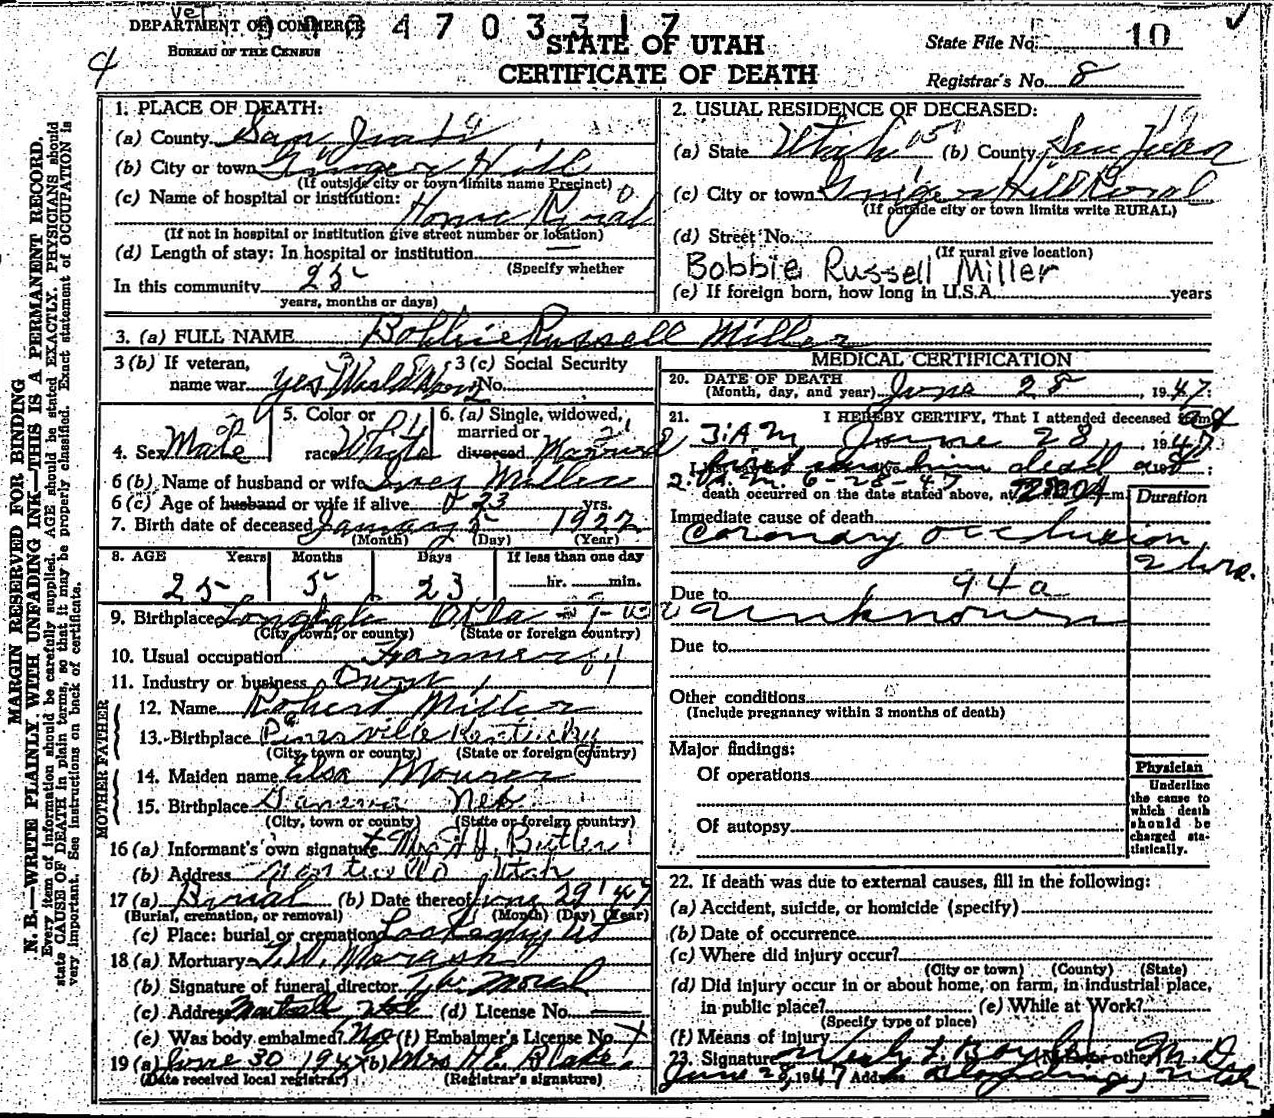 vet
DEPARTMENT OF COMMERCE
BUREAU OF THE CENSUS
4
STATE OF UTAH
CERTIFICATE OF DEATH
State File No. 10
Registrar's No. 8
MARGIN RESERVED FOR BINDING
N. B.—WRITE PLAINLY, WITH UNFADING INK—THIS IS A PERMANENT RECORD.
Every item of information should be carefully supplied. AGE should be stated EXACTLY. PHYSICIANS should
state CAUSE OF DEATH in plain terms, so that it may be properly classified. Exact statement of OCCUPATION is
very important. See instructions on back of certificate.
1. PLACE OF DEATH:
(a) County San Juan
(b) City or town Ginger Hill
(If outside city or town limits name Precinct)
(c) Name of hospital or institution:
Home Rural
(If not in hospital or institution give street number or location)
(d) Length of stay: In hospital or institution
(Specify whether
In this community 25
years, months or days)
2. USUAL RESIDENCE OF DECEASED:
(a) State Utah (b) County San Juan
(c) City or town Ginger Hill Rural
(If outside city or town limits write RURAL)
(d) Street No.
(If rural give location)
Bobbie Russell Miller
(e) If foreign born, how long in U.S.A. years
3. (a) FULL NAME Bobbie Russell Miller
3 (b) If veteran, name war yes World War 2
3 (c) Social Security No.
4. Sex Male
5. Color or race White
6. (a) Single, widowed, married or divorced Married
6 (b) Name of husband or wife Miller
6 (c) Age of husband or wife if alive 23 yrs.
7. Birth date of deceased January 5 1922
(Month) (Day) (Year)
8. AGE Years Months Days If less than one day
25 5 23 hr. min.
9. Birthplace Okla
(City, town, or county) (State or foreign country)
10. Usual occupation Farmer
11. Industry or business Own
FATHER
12. Name Robert Miller
13. Birthplace Pinesville Kentucky
(City, town or county) (State or foreign country)
MOTHER
14. Maiden name Elsa Mourer
15. Birthplace Neb
(City, town or county) (State or foreign country)
16 (a) Informant's own signature Mrs H J. Butler
(b) Address Monticello Utah
17 (a) Burial (b) Date thereof June 29 1947
(Burial, cremation, or removal) (Month) (Day) (Year)
(c) Place: burial or cremation Ut
18 (a) Mortuary
(b) Signature of funeral director
(c) Address (d) License No.
(e) Was body embalmed? No (f) Embalmer's License No.
19 (a) June 30 1947 (b) Mrs H.E. Blake
(Date received local registrar) (Registrar's signature)
MEDICAL CERTIFICATION
20. DATE OF DEATH
(Month, day, and year) June 28, 1947
21. I HEREBY CERTIFY, That I attended deceased
3:AM June 28, 1947
saw him dead
6-28-47
death occurred on the date stated above, at m.
Duration
Immediate cause of death
Coronary occlusion,
2 hrs.
94a
Due to
Unknown
Due to
Other conditions
(Include pregnancy within 3 months of death)
Major findings:
Of operations
Of autopsy
Physician
Underline
the cause to
which death
should be
charged sta-
tistically.
22. If death was due to external causes, fill in the following:
(a) Accident, suicide, or homicide (specify)
(b) Date of occurrence
(c) Where did injury occur?
(City or town) (County) (State)
(d) Did injury occur in or about home, on farm, in industrial place,
in public place? (e) While at Work?
(Specify type of place)
(f) Means of injury
23. Signature M.D.
June 28, 1947 Address Blanding, Utah